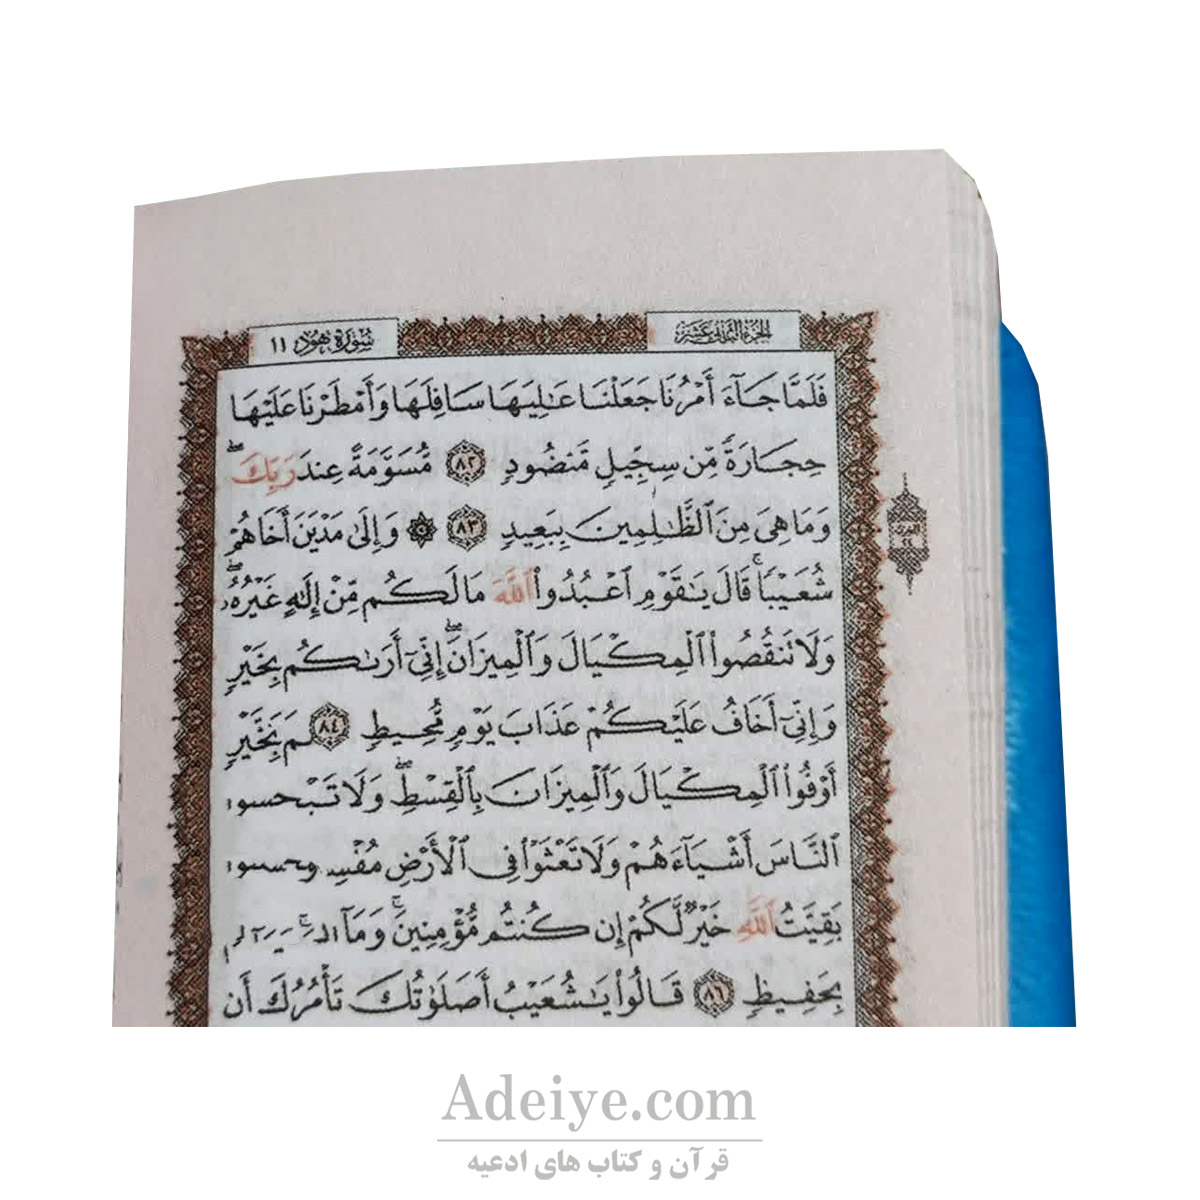 الجزء الثاني عشر
سورة هود ١١
فَلَمَّا جَآءَ أَمْرُنَا جَعَلْنَا عَٰلِيَهَا سَافِلَهَا وَأَمْطَرْنَا عَلَيْهَا
حِجَارَةً مِّن سِجِّيلٍ مَّنضُودٍ ٨٢ مُّسَوَّمَةً عِندَ رَبِّكَ ۖ
وَمَا هِىَ مِنَ ٱلظَّٰلِمِينَ بِبَعِيدٍ ٨٣ ۞ وَإِلَىٰ مَدْيَنَ أَخَاهُمْ
شُعَيْبًا ۚ قَالَ يَٰقَوْمِ ٱعْبُدُوا۟ ٱللَّهَ مَا لَكُم مِّنْ إِلَٰهٍ غَيْرُهُۥ ۖ
وَلَا تَنقُصُوا۟ ٱلْمِكْيَالَ وَٱلْمِيزَانَ ۚ إِنِّىٓ أَرَىٰكُم بِخَيْرٍ
وَإِنِّىٓ أَخَافُ عَلَيْكُمْ عَذَابَ يَوْمٍ مُّحِيطٍ ٨٤
أَوْفُوا۟ ٱلْمِكْيَالَ وَٱلْمِيزَانَ بِٱلْقِسْطِ ۖ وَلَا تَبْخَسُوا۟
ٱلنَّاسَ أَشْيَآءَهُمْ وَلَا تَعْثَوْا۟ فِى ٱلْأَرْضِ
بَقِيَّتُ ٱللَّهِ خَيْرٌ لَّكُمْ إِن كُنتُم مُّؤْمِنِينَ ۚ وَمَآ
بِحَفِيظٍ ٨٦ قَالُوا۟ يَٰشُعَيْبُ أَصَلَوٰتُكَ تَأْمُرُكَ أَن
Adeiye.com
قرآن و کتاب های ادعیه